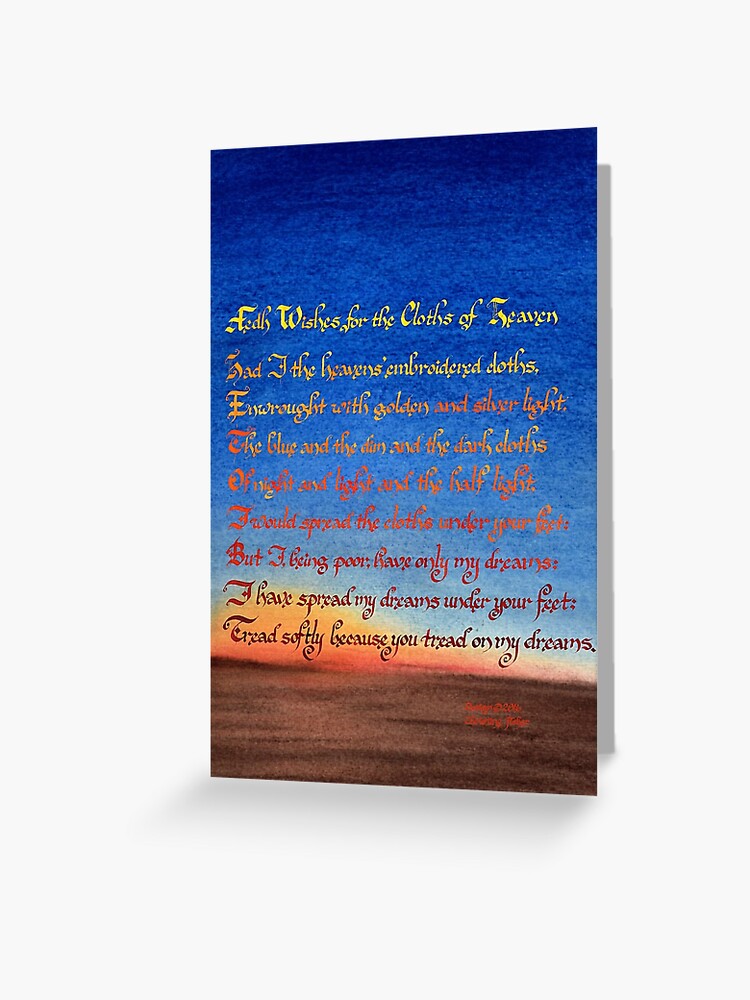 Ædh Wishes for the Cloths of Heaven
Had I the heavens' embroidered cloths,
Enwrought with golden and silver light,
The blue and the dim and the dark cloths
Of night and light and the half light,
I would spread the cloths under your feet:
But I, being poor, have only my dreams;
I have spread my dreams under your feet;
Tread softly because you tread on my dreams.